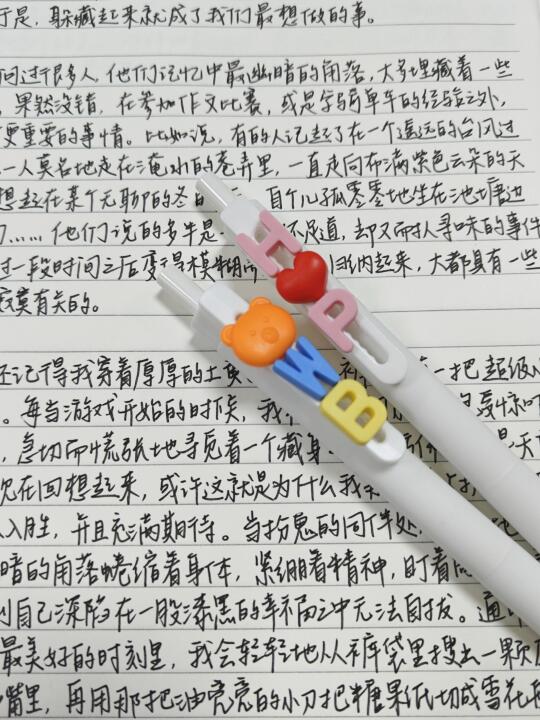 于是，躲藏起来就成了我们最想做的事。
问过很多人，他们记忆中最幽暗的角落，大多埋藏着一些
果然没错，在参加作文比赛，或是学骑单车的经验之外，
更重要的事情。比如说，有的人记起了在一个遥远的台风过
一人莫名地走在淹水的巷弄里，一直走向布满紫色云朵的天
想起在某个无聊的冬日 自个儿孤零零地坐在池塘边
了……他们说的多半是 不足道，却又耐人寻味的事件
过一段时间之后变得模糊 归纳起来，大都具有一些
寂寞有关的。
还记得我穿着厚厚的土黄 一把超级
。每当游戏开始的时候，我
，急切而慌张地寻觅着一个藏身 是天
次在回想起来，或许这就是为什么我
人入胜，并且充满期待。当扮鬼的同伴处
暗的角落蜷缩着身体，紧绷着精神，盯着
到自己深陷在一股漆黑的幸福之中无法自拔。通
最美好的时刻里，我会轻轻地从裤袋里搜出一颗
嘴里，再用那把油亮亮的小刀把糖果纸切成雪花
H
P
W
B